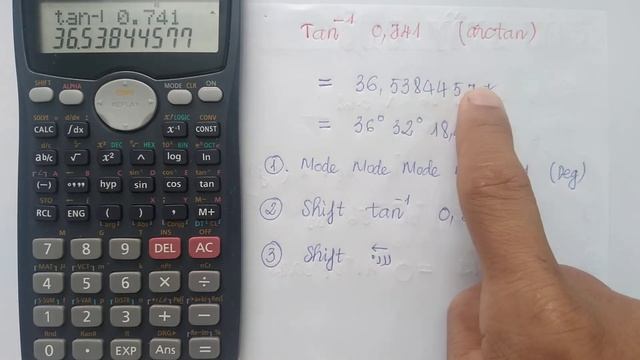 tan-1 0.741
36.53844577
SHIFT ALPHA MODE CLR ON
REPLAY
CALC ∫dx x-1 CONST
ab/c √ x² ^ log ln
(-) °,,, hyp sin cos tan
RCL ENG ( ) , M+
7 8 9 DEL AC
4 5 6 × ÷
1 2 3 + −
0 . EXP Ans =
Tan⁻¹ 0,741 (arctan)
= 36,5384457
= 36° 32° 18,
①. Mode Mode Mode (Deg)
② Shift tan⁻¹ 0,
③ Shift ←°,,,